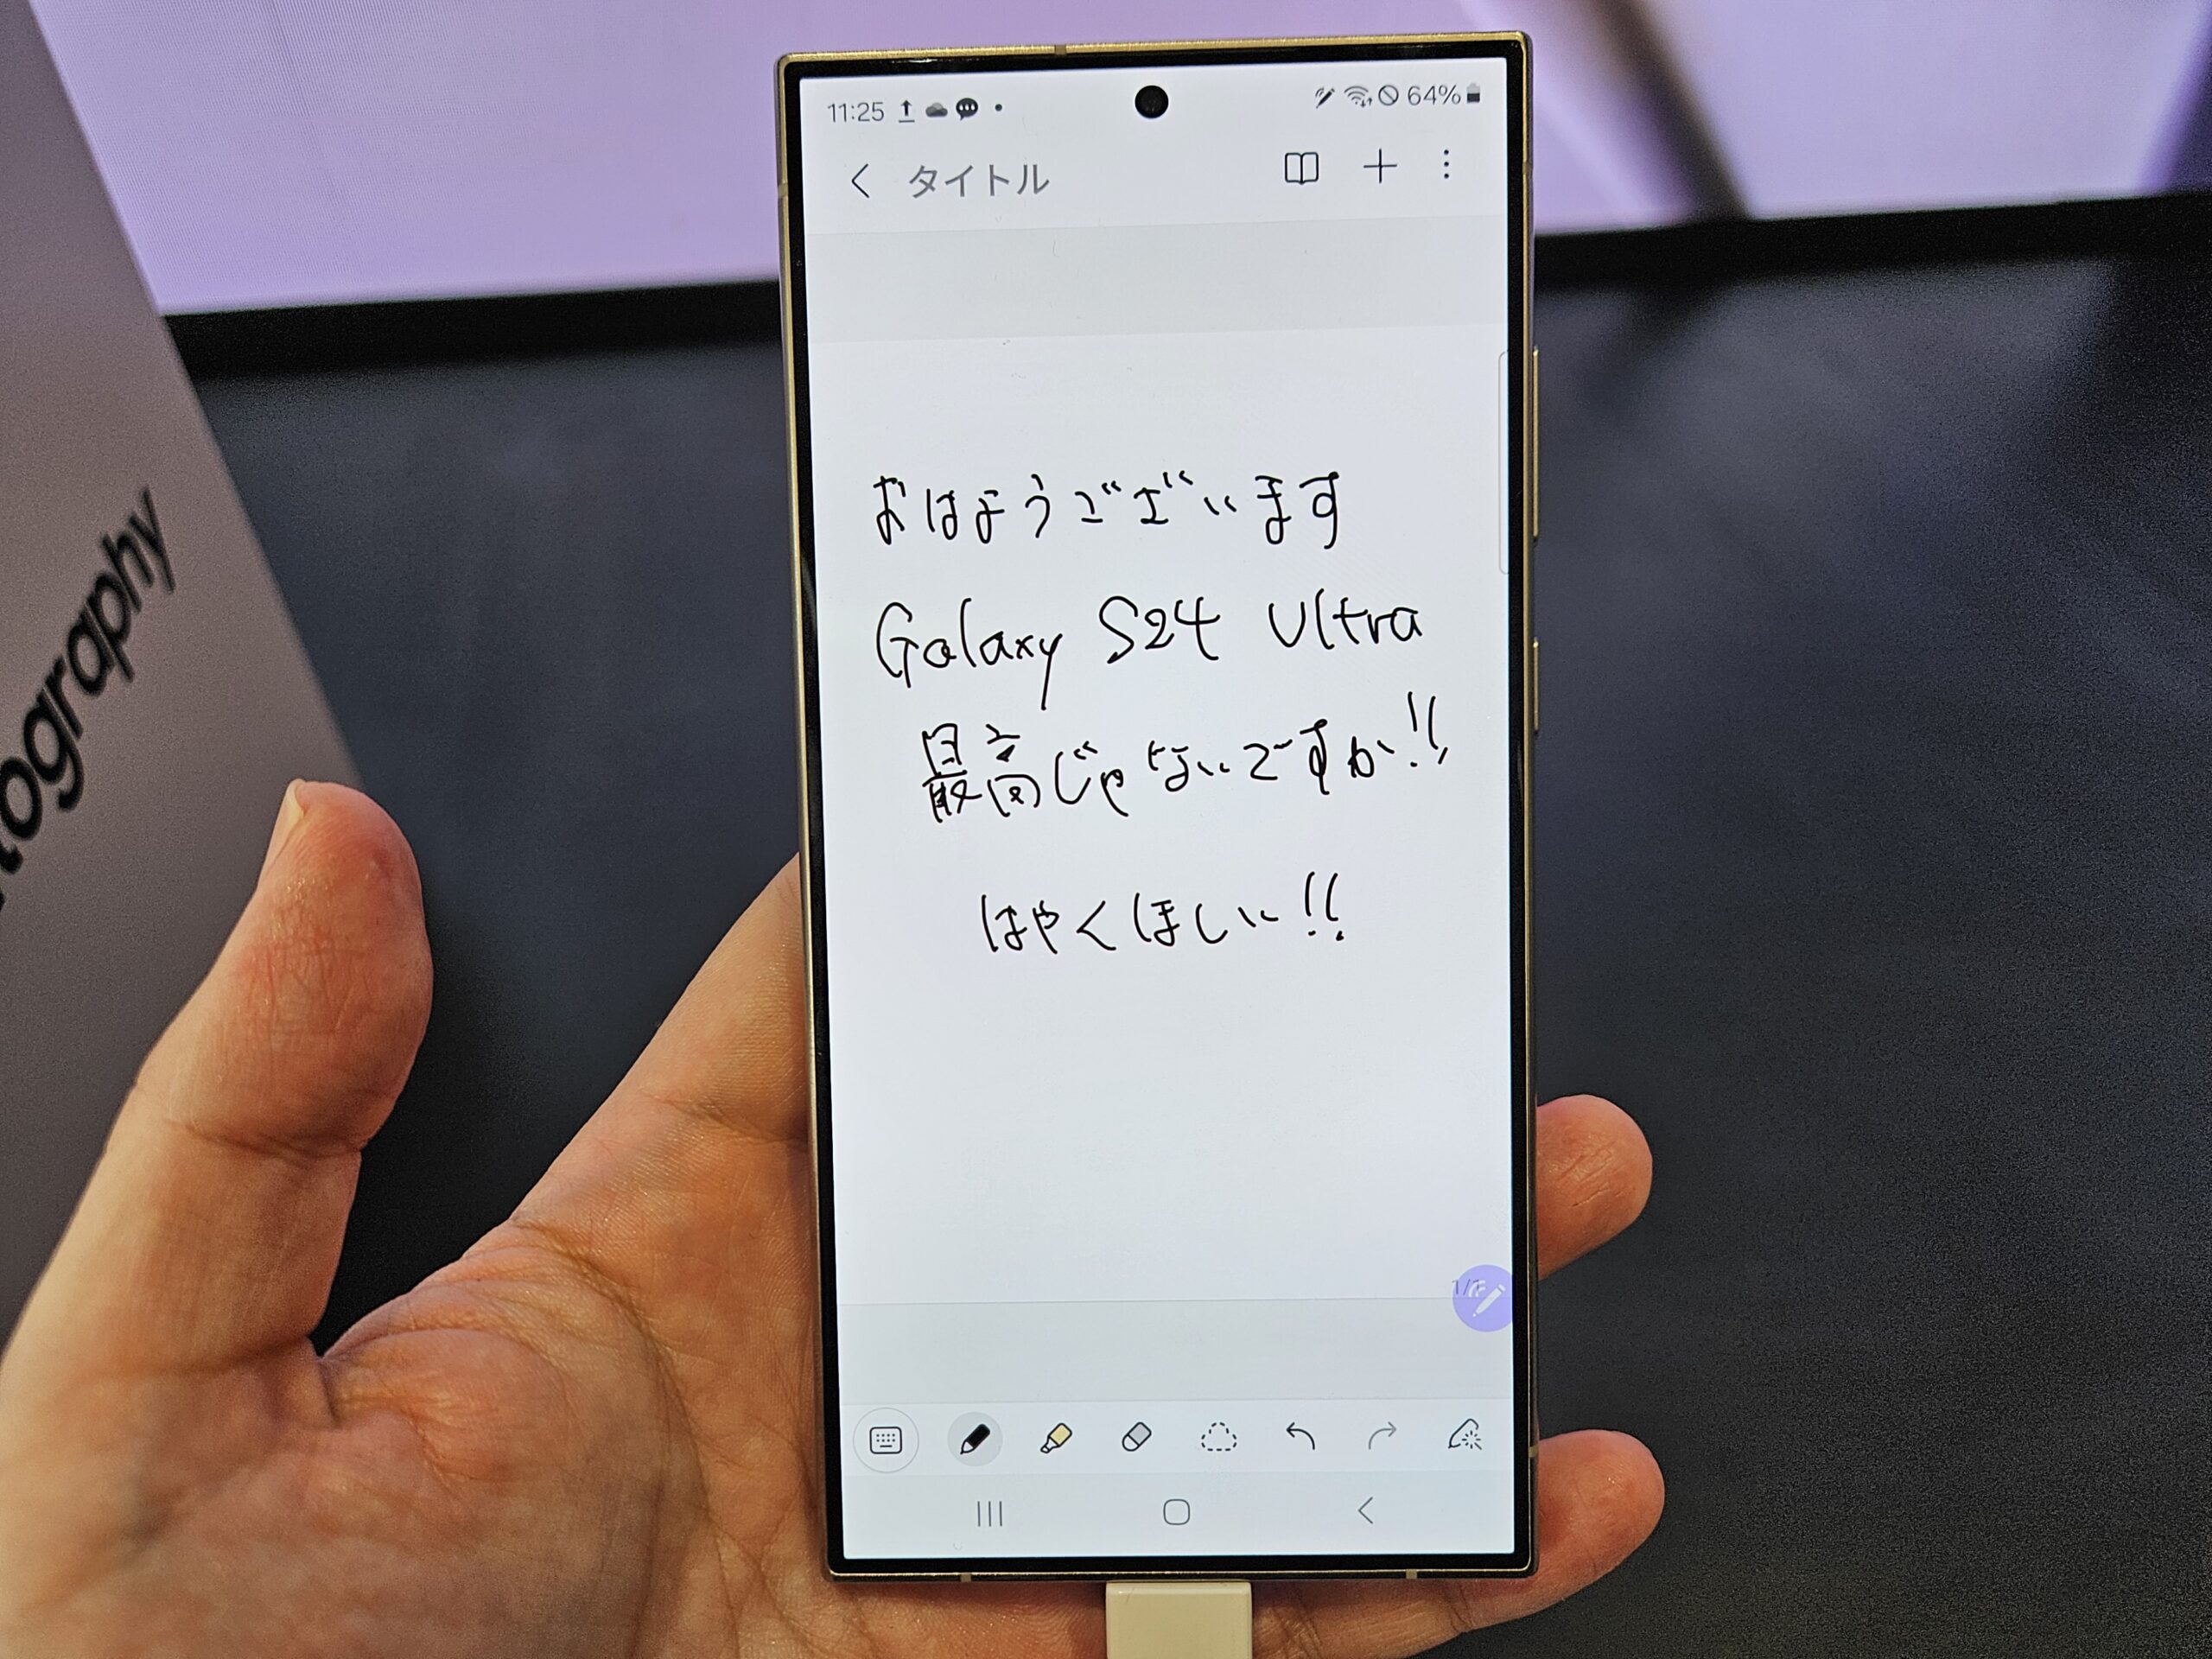 11:25 64%
タイトル
おはようございます
Galaxy S24 Ultra
最高じゃないですか!!
はやくほしい!!
1/1
tography